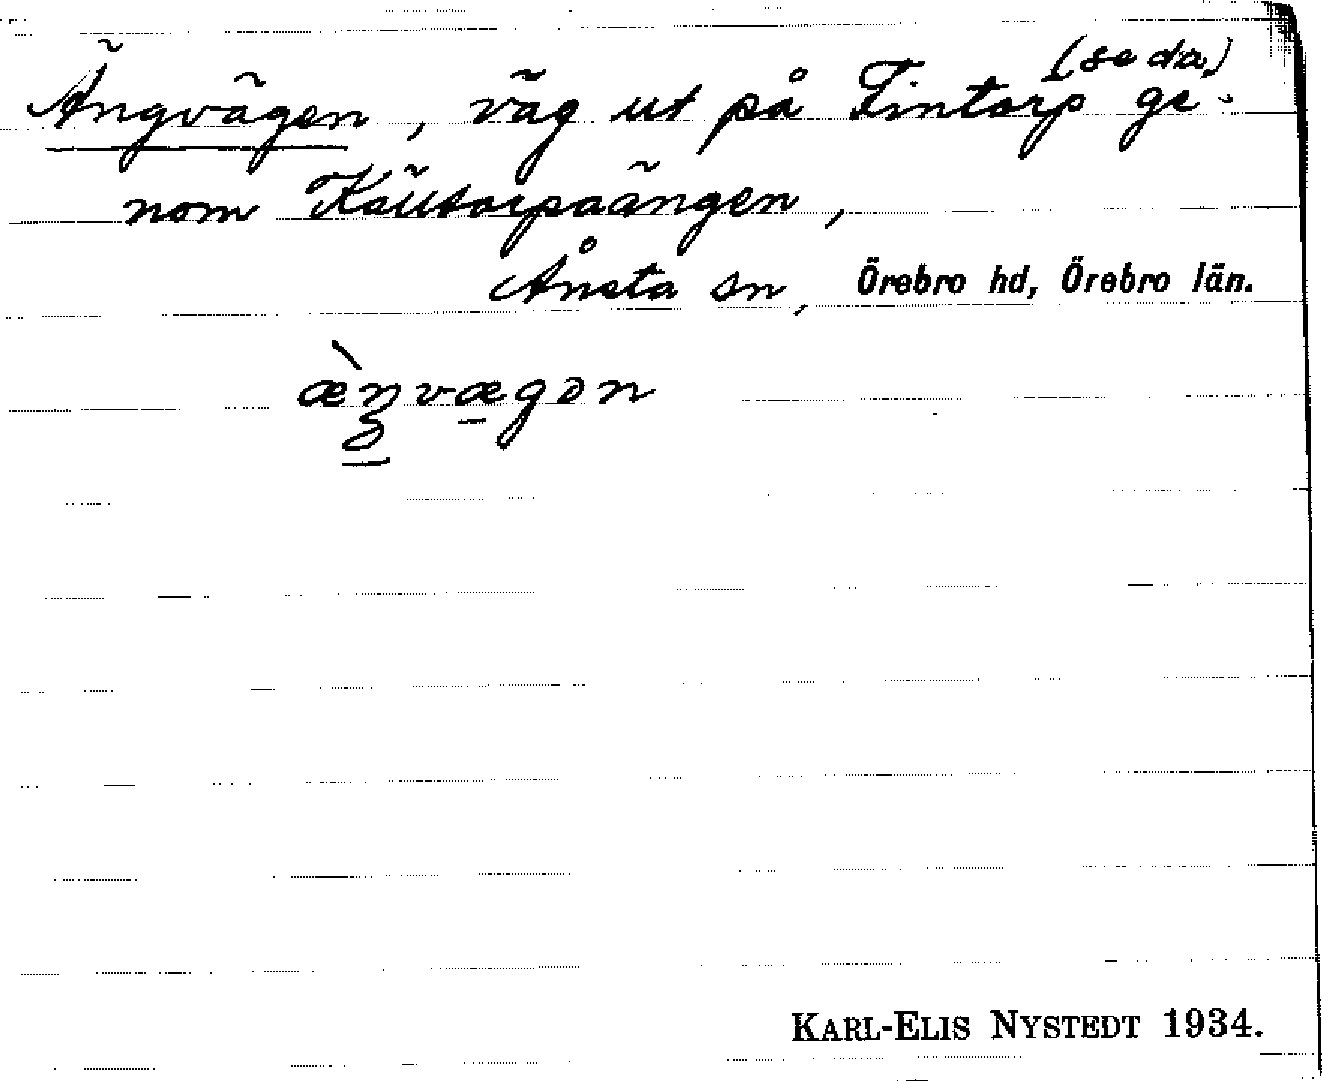 Ängvägen, väg ut på Fintorp (se da) ge-
nom Källtorpaängen,
Ånsta sn, Örebro hd, Örebro län.
æ̀ŋvægən
KARL-ELIS NYSTEDT 1934.